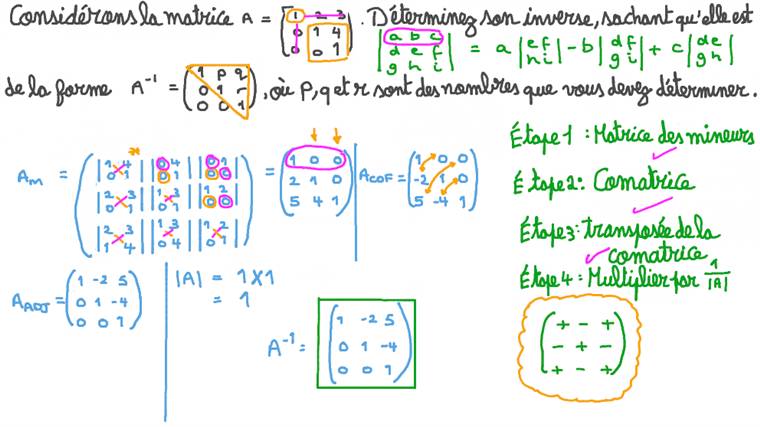 Considérons la matrice A = (1 2 3 / 0 1 4 / 0 0 1). Déterminez son inverse, sachant qu'elle est
|a b c / d e f / g h i| = a |e f / h i| - b |d f / g i| + c |d e / g h|
de la forme A⁻¹ = (1 p q / 0 1 r / 0 0 1), où p, q et r sont des nombres que vous devez déterminer.
Étape 1 : Matrice des mineurs
A_M = (|1 4 / 0 1| |0 4 / 0 1| |0 1 / 0 0| / |2 3 / 0 1| |1 3 / 0 1| |1 2 / 0 0| / |2 3 / 1 4| |1 3 / 0 4| |1 2 / 0 1|) = (1 0 0 / 2 1 0 / 5 4 1)
A_COF = (1 0 0 / -2 1 0 / 5 -4 1)
Étape 2 : Comatrice
Étape 3 : transposée de la
comatrice
Étape 4 : Multiplier par 1/|A|
A_ADJ = (1 -2 5 / 0 1 -4 / 0 0 1)
|A| = 1 × 1
= 1
A⁻¹ = (1 -2 5 / 0 1 -4 / 0 0 1)
(+ - + / - + - / + - +)